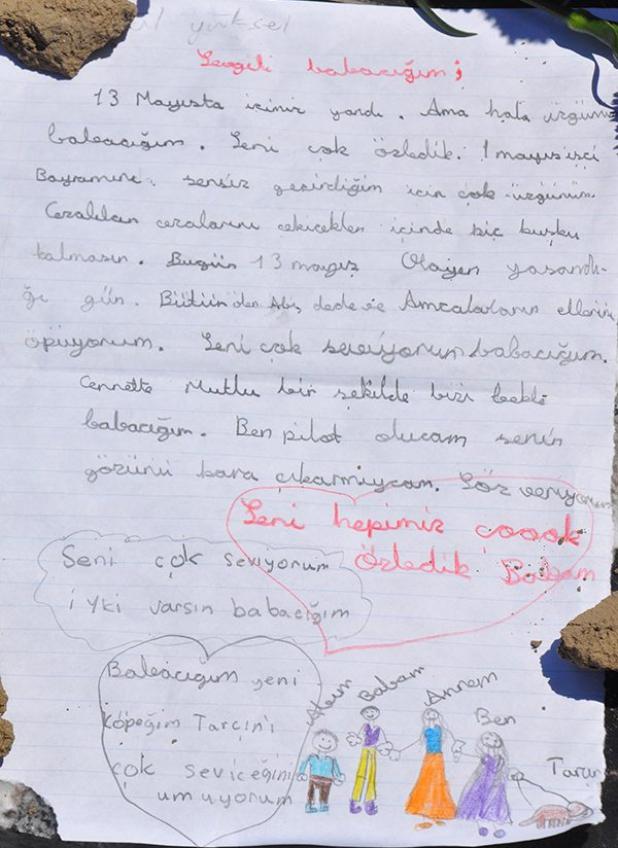 yüksel
Sevgili babacığım;
13 Mayısta içimiz yandı. Ama hala üzgünüm
babacığım. Seni çok özledik. 1 mayıs işçi
Bayramını sensiz geçirdiğim için çok üzgünüm.
Cezalılar cezalarını çekicekler içinde hiç kuşku
kalmasın. Bugün 13 mayıs Olayın yaşandı-
ğı gün. Bütün den Abi, dede ve Amcalarım ellerini
öpüyorum. Seni çok seviyorum babacığım.
Cennette Mutlu bir şekilde bizi bekle
babacığım. Ben pilot olucam senin
yüzünü kara çıkarmıycam. Söz veriyorum
Seni hepimiz çoook
özledik Babam
Seni çok seviyorum
iyki varsın babacığım
Babacığım yeni
köpeğim Tarçın'ı
çok seviceğini
umuyorum
Abim Babam Annem Ben Tarçın